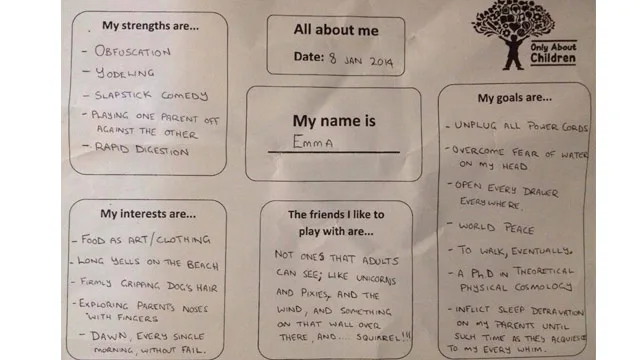 My strengths are...
- OBFUSCATION
- YODELING
- SLAPSTICK COMEDY
- PLAYING ONE PARENT OFF
AGAINST THE OTHER
- RAPID DIGESTION
All about me
Date: 8 JAN 2014
Only About
Children
My name is
EMMA
My goals are...
- UNPLUG ALL POWER CORDS
- OVERCOME FEAR OF WATER
ON MY HEAD
- OPEN EVERY DRAWER
EVERYWHERE.
- WORLD PEACE
- TO WALK, EVENTUALLY.
- A PH.D IN THEORETICAL
PHYSICAL COSMOLOGY
- INFLICT SLEEP DEPRAVATION
ON MY PARENTS UNTIL
SUCH TIME AS THEY ACQUIESCE
TO MY EVERY WHIM.
My interests are...
- FOOD AS ART/CLOTHING
- LONG YELLS ON THE BEACH
- FIRMLY GRIPPING DOG'S HAIR
- EXPLORING PARENTS NOSES
WITH FINGERS
- DAWN, EVERY SINGLE
MORNING, WITHOUT FAIL.
The friends I like to
play with are...
NOT ONES THAT ADULTS
CAN SEE; LIKE UNICORNS
AND PIXIES, AND THE
WIND, AND SOMETHING
ON THAT WALL OVER
THERE, AND.... SQUIRREL!!!